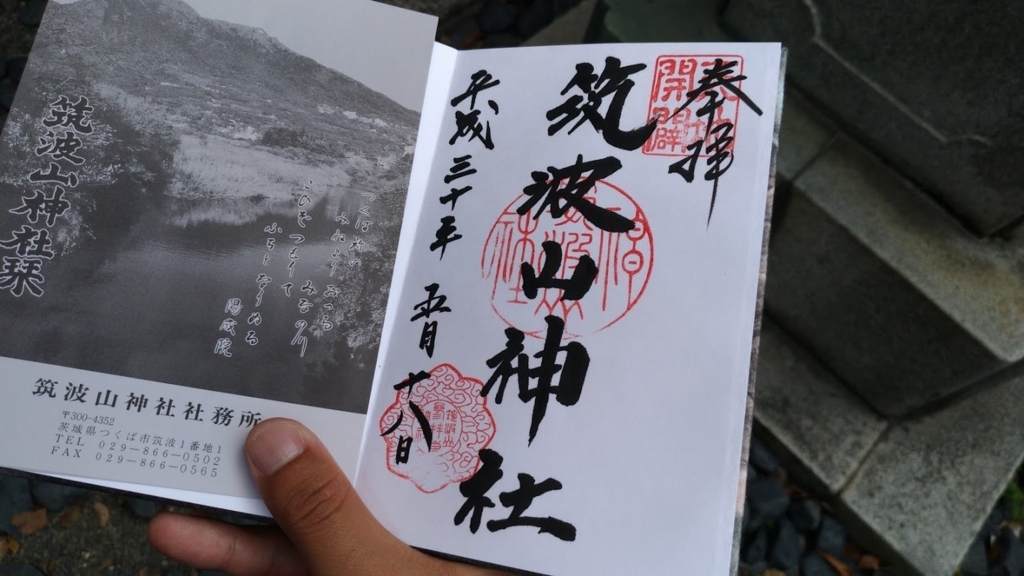 筑波山神社栞
つくばねの
みねよりおつる
みなの川
こひぞつもりて
ふちとなりぬる
陽成院
筑波山神社社務所
〒300-4352
茨城県つくば市筑波1番地1
TEL 029-866-0502
FAX 029-866-0565
奉拝
天地
開闢
筑波山神社
平成三十年 五月 十八日